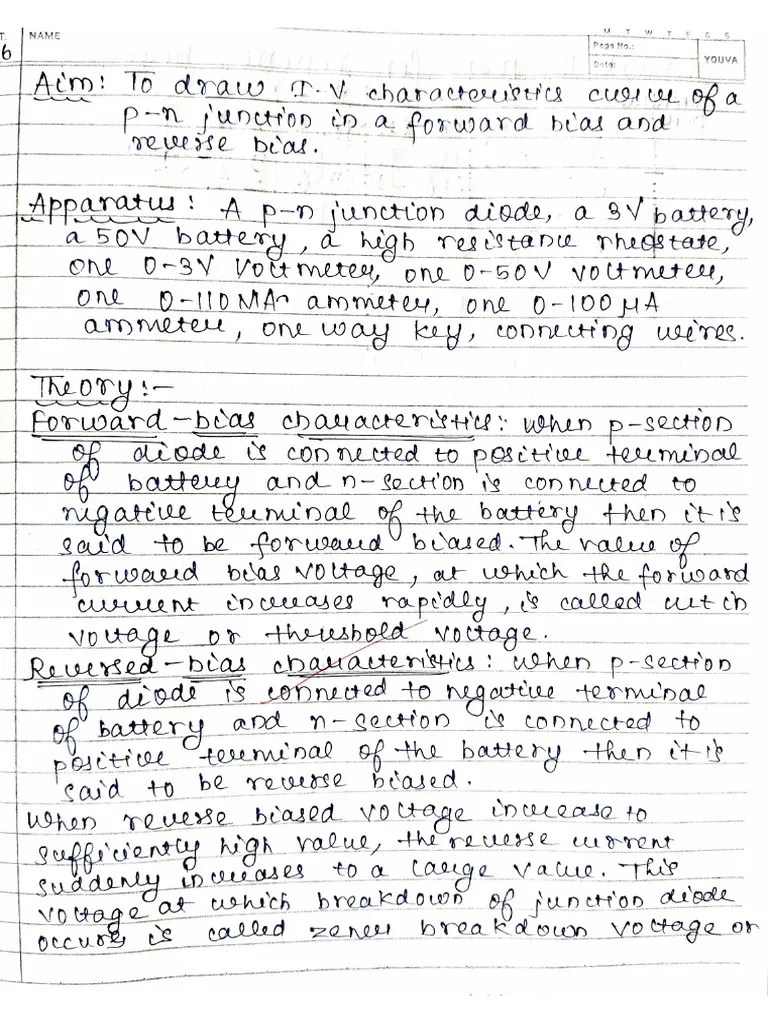 T. NAME M T W T F S S
6 Page No.:
Date: YOUVA
Aim: To draw I-V characteristics curve of a
p-n junction in a forward bias and
reverse bias.
Apparatus: A p-n junction diode, a 3V battery,
a 50V battery, a high resistance rheostate,
one 0-3V voltmeter, one 0-50V voltmeter,
one 0-110MA ammeter, one 0-100 μA
ammeter, one way key, connecting wires.
Theory:-
Forward-bias characteristics: when p-section
of diode is connected to positive terminal
of battery and n-section is connected to
nigative terminal of the battery then it is
said to be forward biased. The value of
forward bias voltage, at which the forward
current increases rapidly, is called cut in
voltage or threshold voltage.
Reversed-bias characteristics: when p-section
of diode is connected to negative terminal
of battery and n-section is connected to
positive terminal of the battery then it is
said to be reverse biased.
When reverse biased voltage increase to
sufficiently high value, the reverse current
suddenly increases to a large value. This
voltage at which breakdown of junction diode
occurs is called zener breakdown voltage or